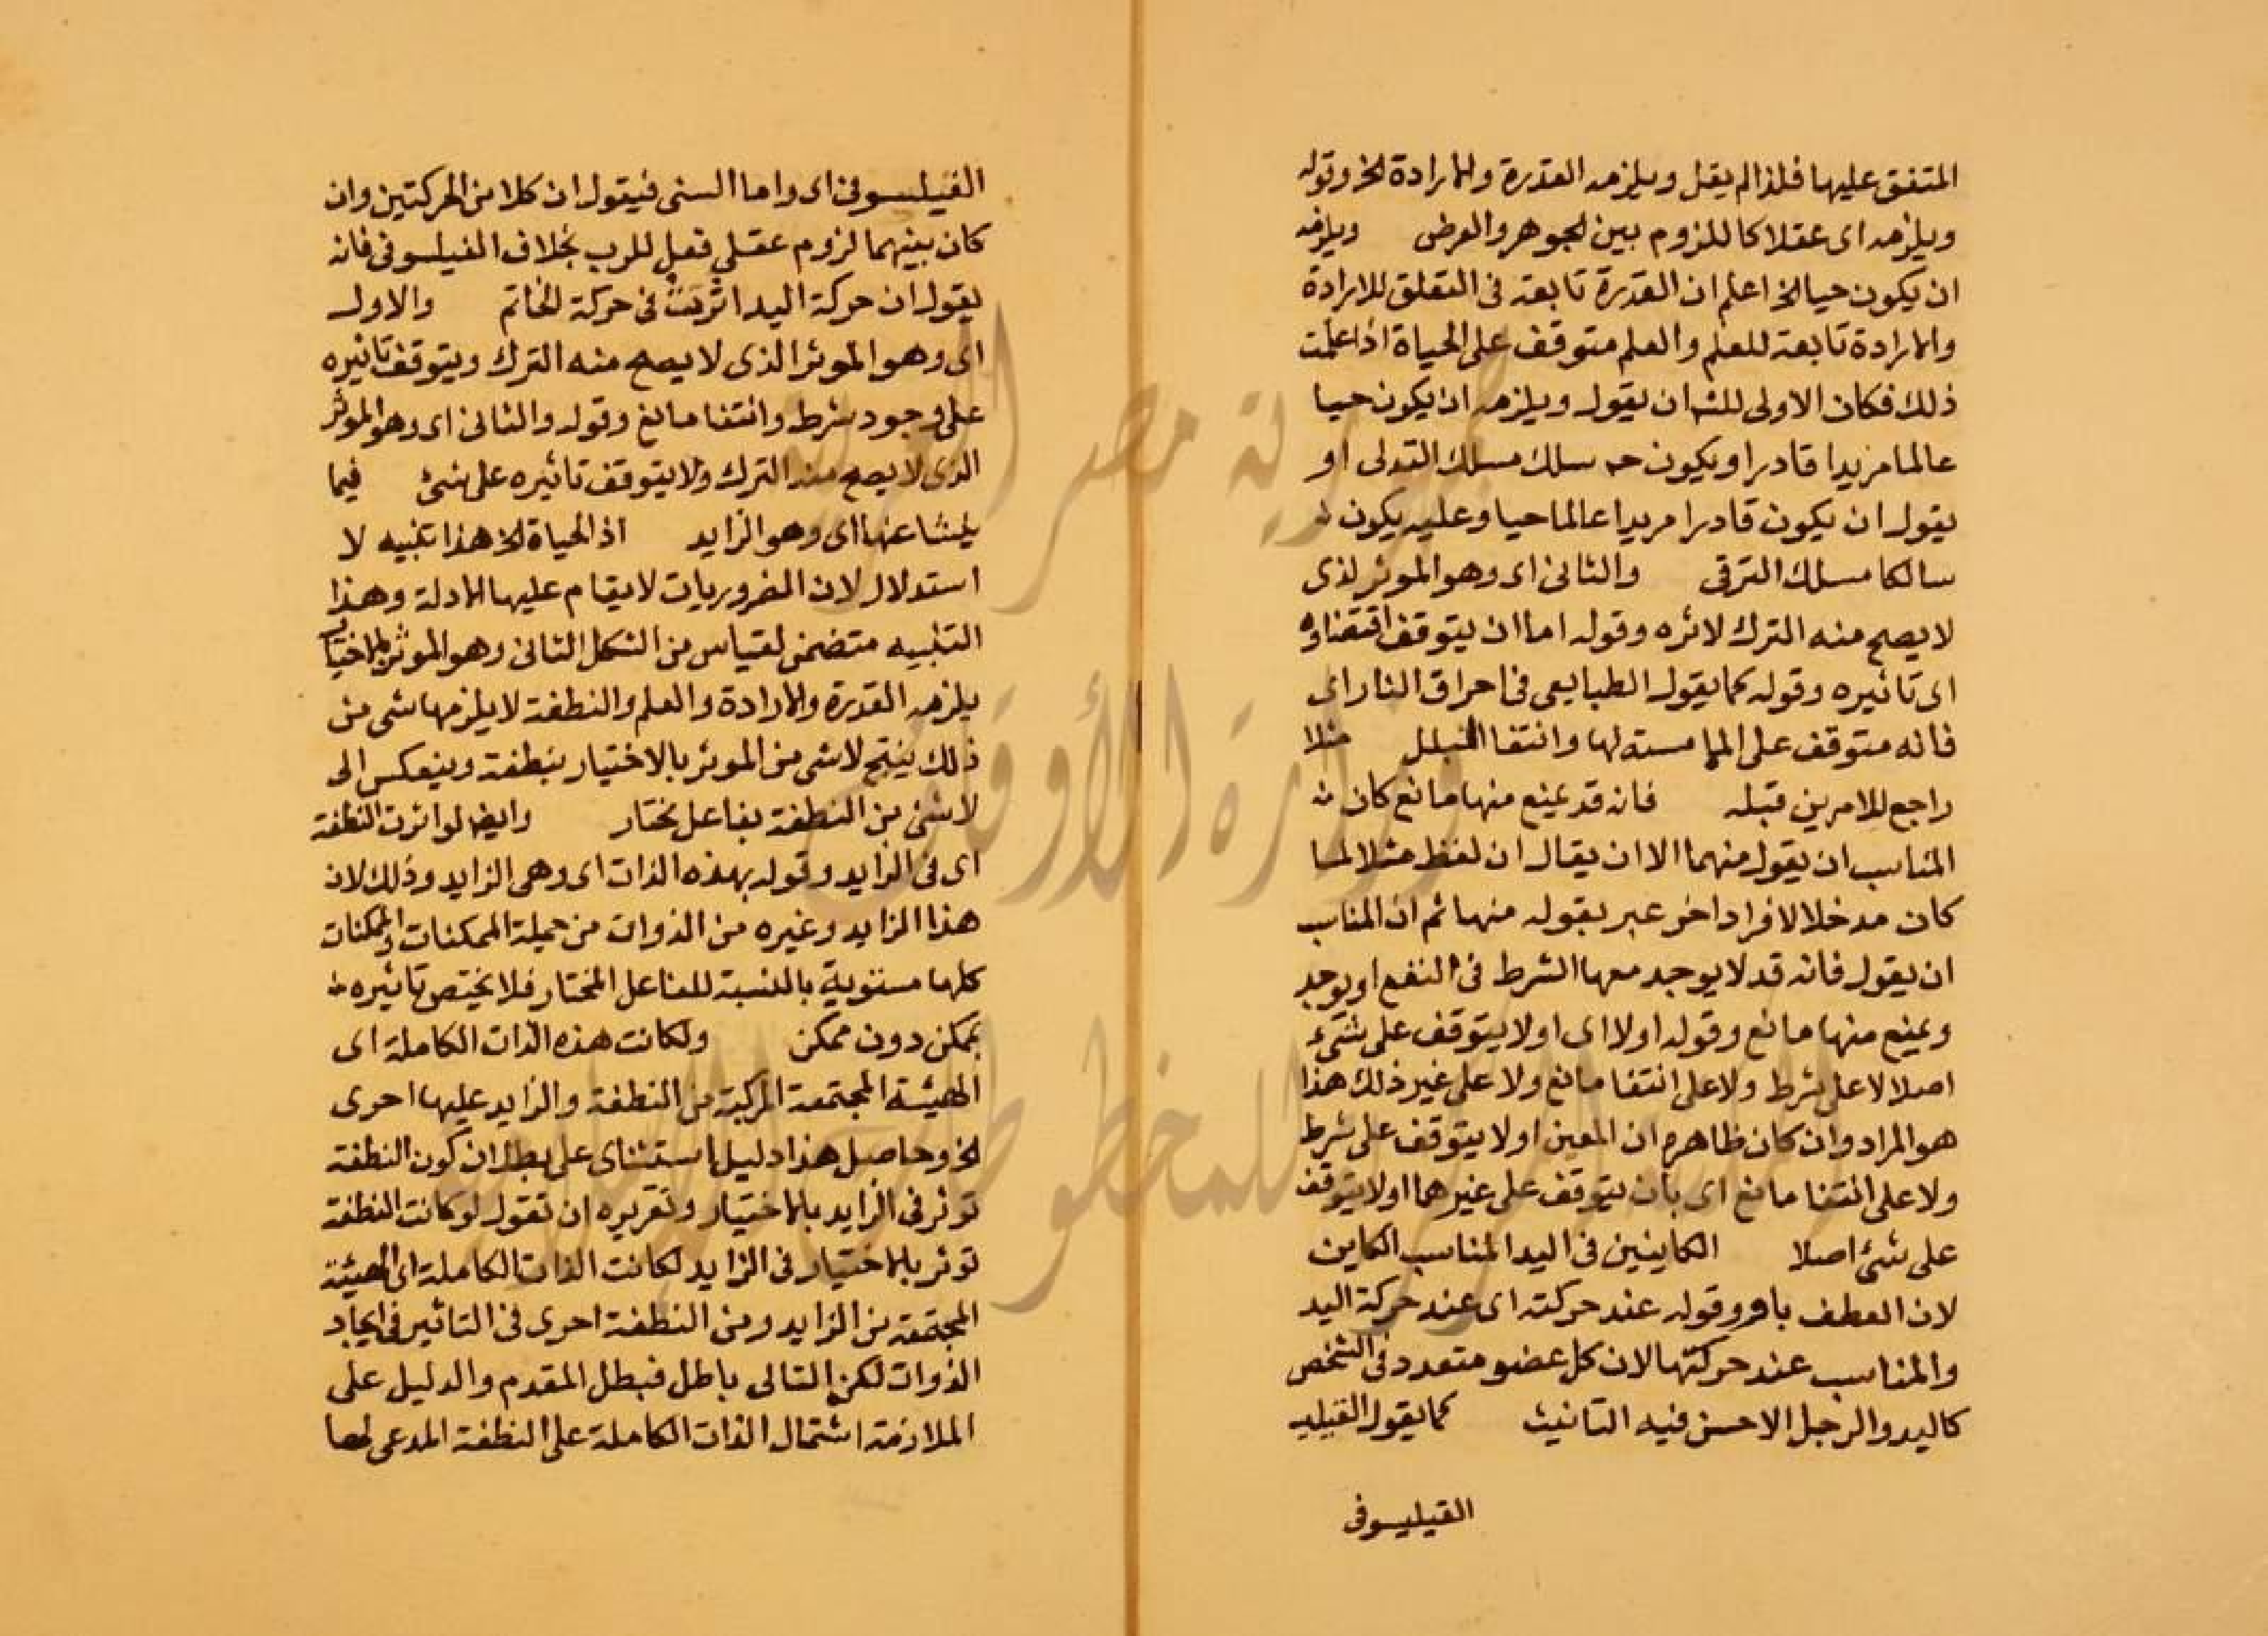 المتفق عليها فلذا لم يقل ويلزمه القدرة والارادة الخ وقوله
ويلزمه اى عقلا كاللزوم بين الجوهر والعرض ويلزمه
ان يكون حيا الخ اعلم ان القدرة تابعة فى التعلق للارادة
والارادة تابعة للعلم والعلم متوقف على الحياة اذا علمت
ذلك فكان الاولى للشـ ان يقول ويلزمه ان يكون حيا
عالما مريدا قادرا ويكون حـ سلك مسلك التدلى او
يقول ان يكون قادرا مريدا عالما حيا وعليه يكون
سالكا مسلك الترقى والثانى اى وهو الموثر لذى
لا يصح منه الترك لاثره وقوله اما ان يتوقف اقتضاوه
اى تاثيره وقوله كما يقول الطبايعى فى احراق النار اى
فانه متوقف على المامسته لها وانتفا البلل مثلا
راجع للامرين قبله فانه قد يمنع منها مانع كان
المناسب ان يقول منهما الا ان يقال ان لفظ مثلا لما
كان مدخلا لافراد اخر عبر بقوله منها ثم ان المناسب
ان يقول فانه قد لا يوجد معها الشرط فى النفع او يوجد
ويمنع منها مانع وقوله اولا اى اولا يتوقف على شىء
اصلا لا على شرط ولا على انتفا مانع ولا على غير ذلك هذا
هو المراد وان كان ظاهره ان المعين اولا يتوقف على شرط
ولا على انتفا مانع اى بان يتوقف على غيرهما اولا يتوقف
على شئ اصلا الكاينين فى اليد المناسب الكاين
لان العطف باو وقوله عند حركته اى عند حركة اليد
والمناسب عند حركتها لان كل عضو متعدد فى الشخص
كاليد والرجل الاحسن فيه التانيث كما يقول الفيليـ
الفيليسوفى
الفيلسوفى اى واما السنى فيقول ان كلا من الحركتين وان
كان بينهما لزوم عقلي فعل للرب بخلاف الفيلسوفى فانه
يقول ان حركة اليد اثرت فى حركة الخاتم والاول
اى وهو الموثر الذى لا يصح منه الترك ويتوقف تاثيره
على وجود شرط وانتفا مانع وقوله والثانى اى وهو الموثر
الذى لا يصح منه الترك ولا يتوقف تاثيره على شئ فيما
ينشا عنها اى وهو الزايد اذ الحياة الخ هذا تنبيه لا
استدلال لان الضروريات لا يقام عليها الادلة وهذا
التنبيه متضمن لقياس من الشكل الثانى وهو الموثر بالاختيار
يلزمه القدرة والارادة والعلم والنطفة لا يلزمها شى من
ذلك ينتج لا شى من الموثر بالاختيار بنطفة وينعكس الى
لا شئ من النطفة بفاعل مختار وايضا لو اثرت النطفة
اى فى الزايد وقوله بهذه الذات اى وهى الزايد وذلك لان
هذا الزايد وغيره من الذوات من جملة الممكنات والممكنات
كلها مستوية بالنسبة للفاعل المختار فلا يختص تاثيره
بممكن دون ممكن ولكانت هذه الذات الكاملة اى
الهيئة المجتمعة المركبة من النطفة والزايد عليها احرى
الخ وحاصل هذا دليل استثناى على بطلان كون النطفة
توثر فى الزايد بالاختيار وتقريره ان تقول لو كانت النطفة
توثر بالاختيار فى الزايد لكانت الذات الكاملة اى الهيئة
المجتمعة من الزايد ومن النطفة احرى فى التاثير فى ايجاد
الذوات لكن التالى باطل فبطل المقدم والدليل على
الملازمة اشتمال الذات الكاملة على النطفة المدعى لها